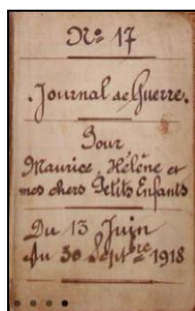 Nº 17
Journal de Guerre.
Pour
Maurice, Hélène et
mes chers Petits Enfants
Du 13 Juin
Au 30 Septbre 1918